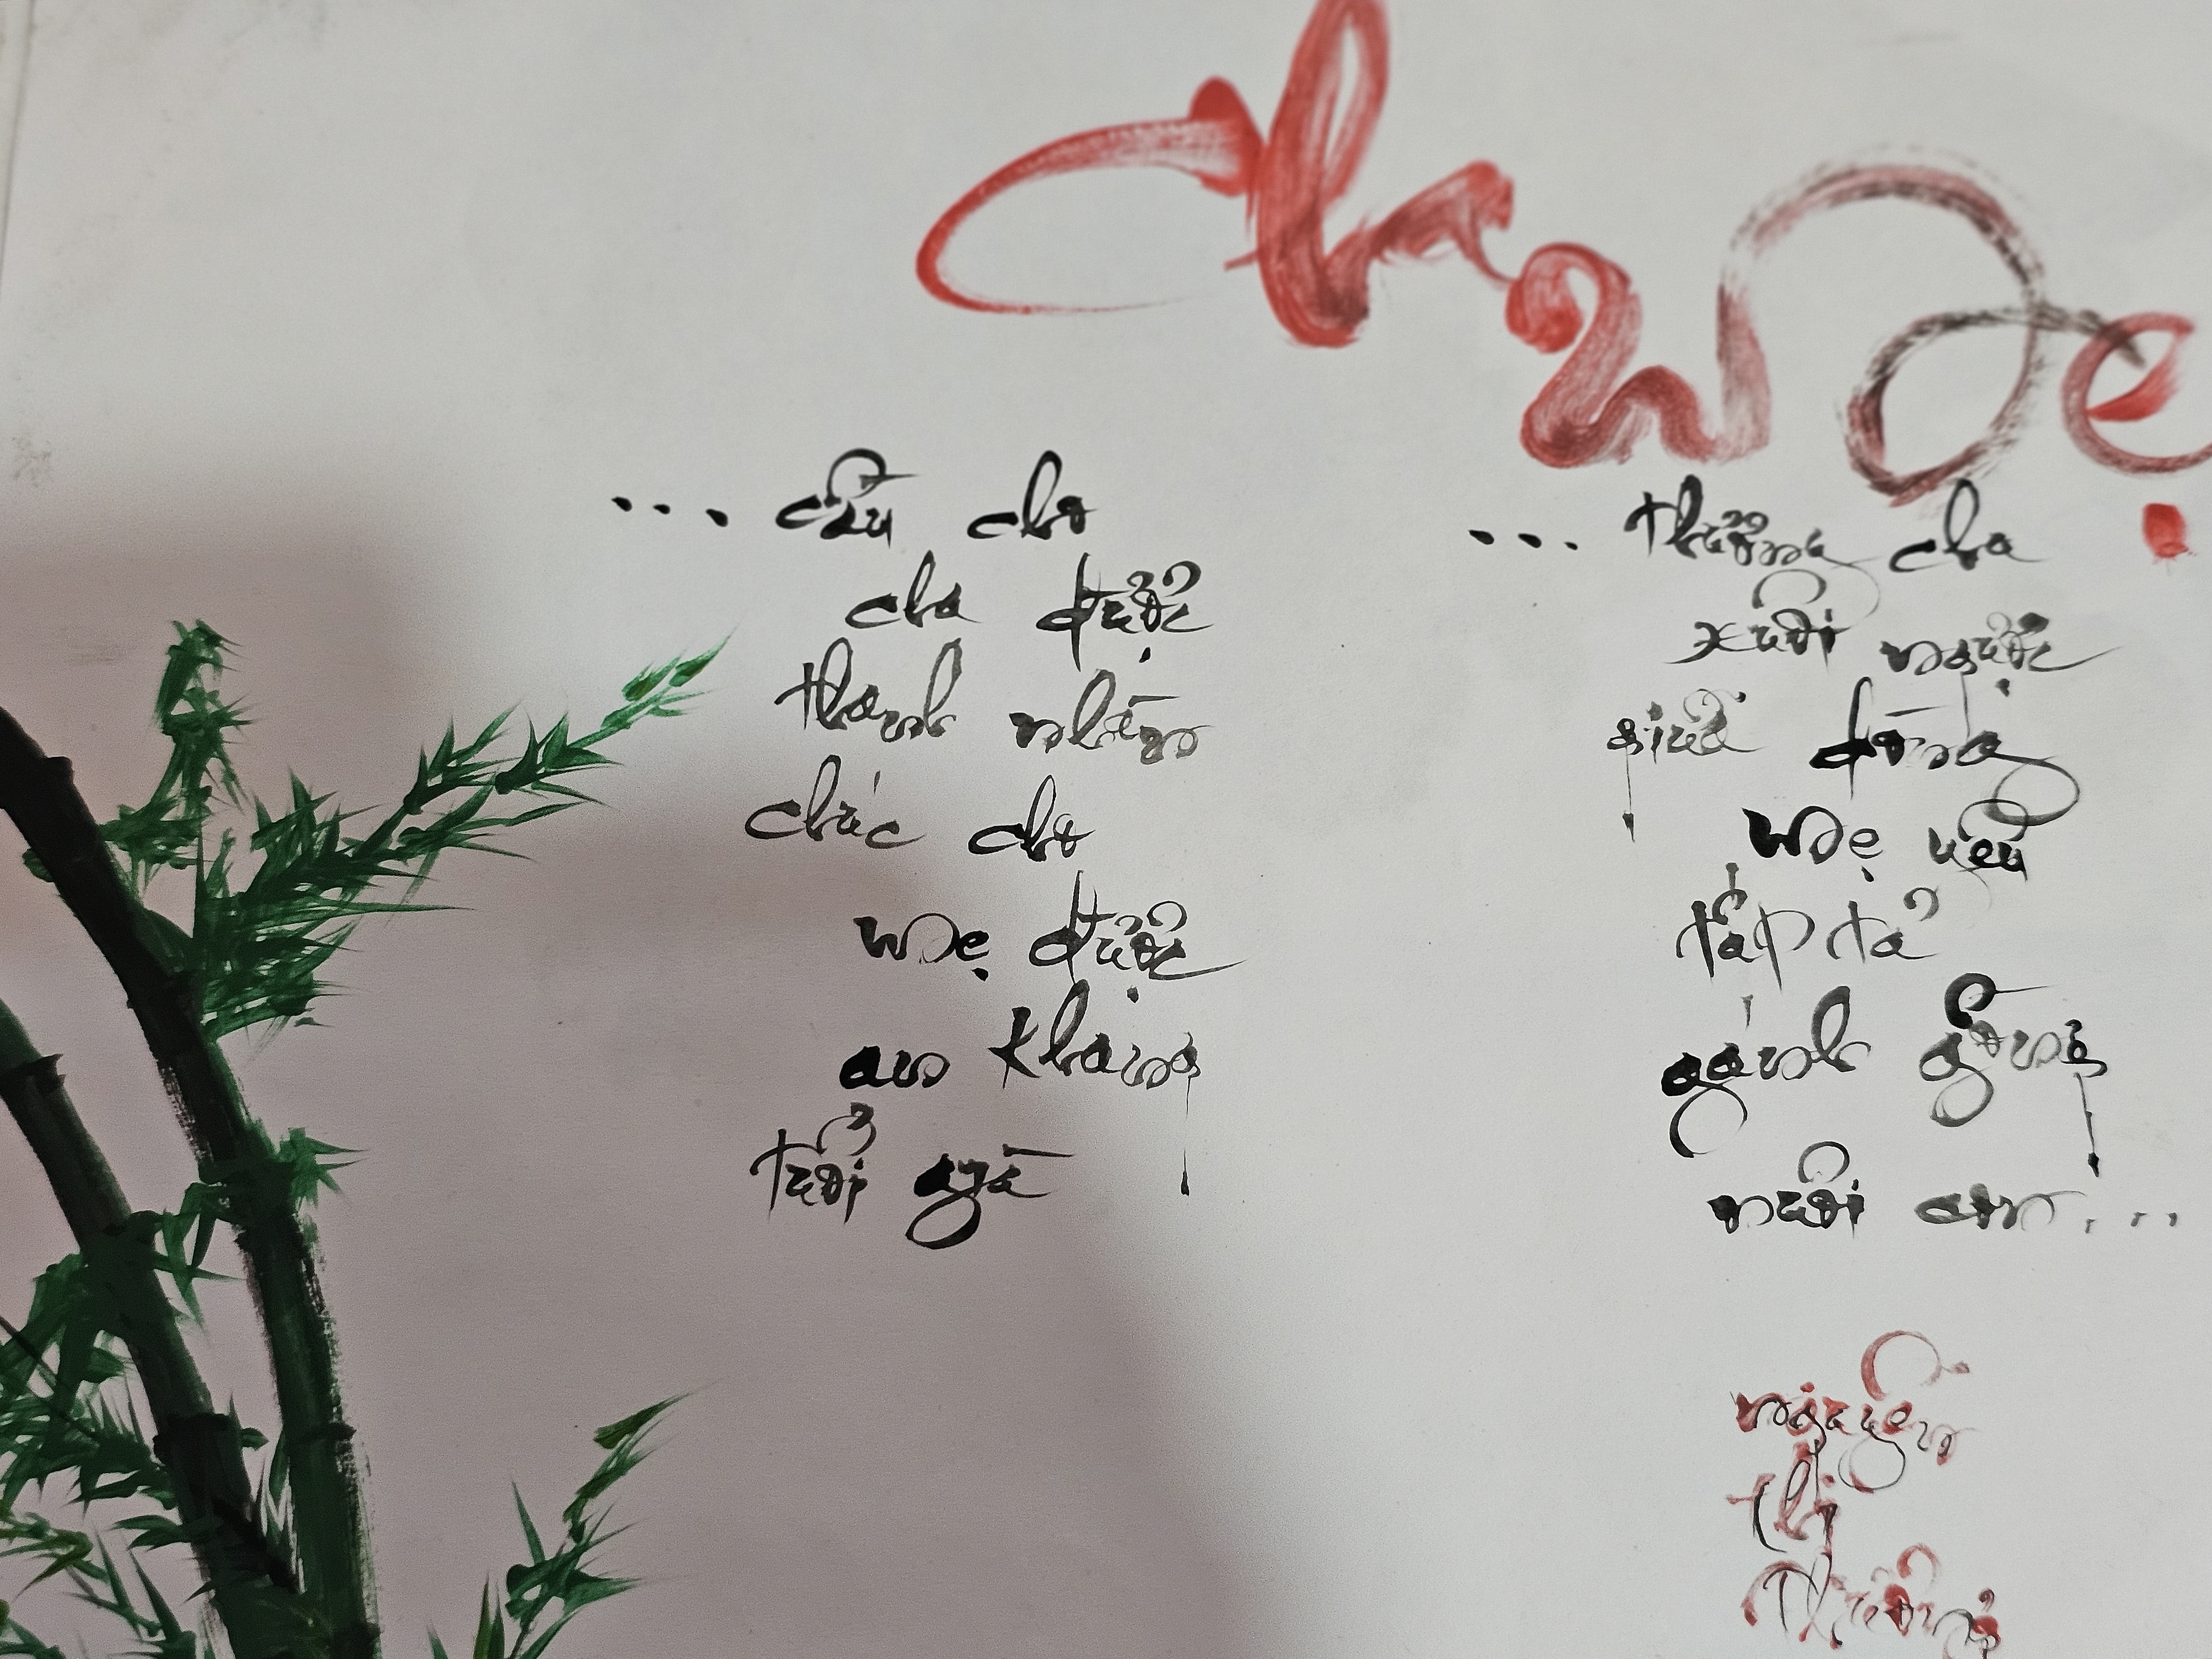 cha mẹ
... cầu cho
cha được
thanh nhàn
chúc cho
mẹ được
an khang
tuổi già
... thương cha
xuôi ngược
giữa dòng
mẹ yêu
tấp tả
gánh gồng
nuôi con...
nguyễn
thị
Thương